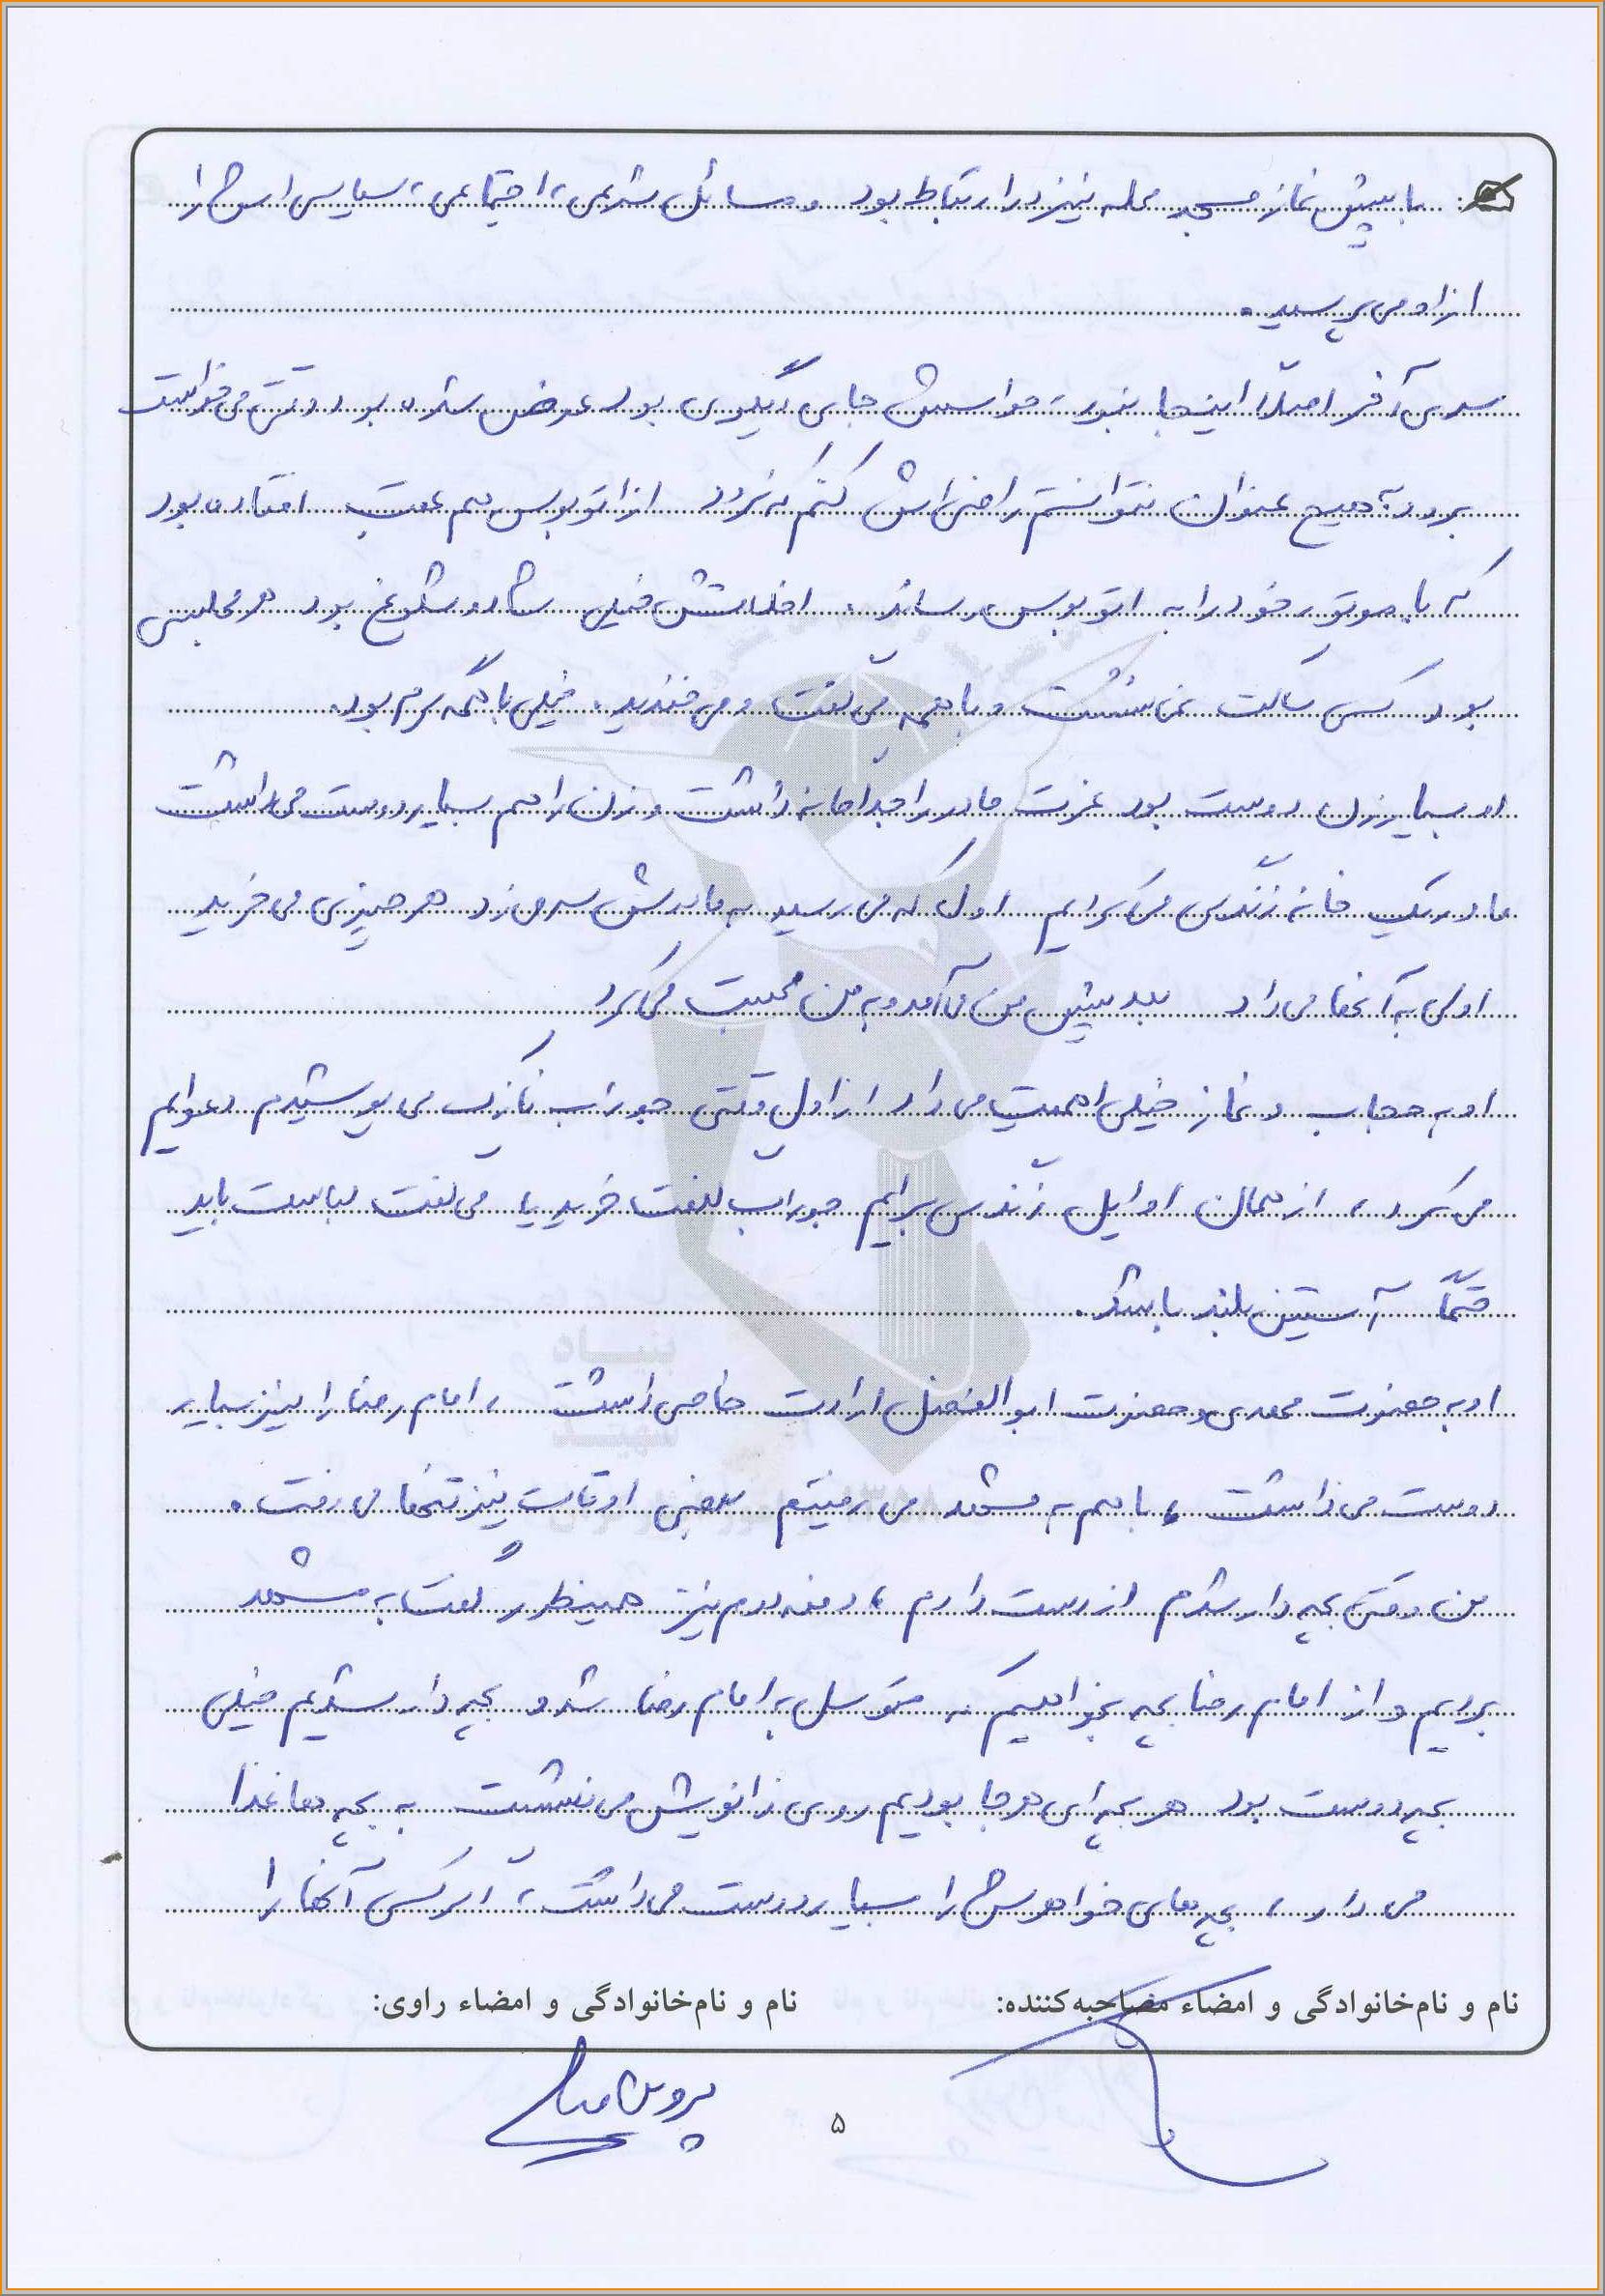 با پیش نماز مسجد محله نیز در ارتباط بود و مسائل شرعی، اجتماعی، سیاسی اش را
از او می پرسید.
سری آخر اصلاً اینجا نبود، حواسش جای دیگری بود عوض شده بود وقتی می خواست
برود به هیچ عنوان نتوانستم راضی اش کنم که نرود از اتوبوس هم عقب افتاده بود
که با موتور خود را به اتوبوس رساند. اخلاقش خیلی شاد و شلوغ بود هر مجلسی
بود کسی ساکت نمی نشست و با همه می گفت و می خندید. خیلی با همه گرم بود.
او بسیار زن دوست بود عزت مادر را جداگانه داشت و زن را هم بسیار دوست می داشت
ما در یک خانه زندگی می کردیم اول که می رسید به مادرش سر می زد هر چیزی می خرید
اول به آنها می داد بعد پیش من می آمد و به من محبت می کرد
او به حجاب و نماز خیلی اهمیت می داد از اول وقتی جوراب نازک می پوشیدم دعوایم
می کرد، از همان اوایل زندگی برایم جوراب کلفت خرید یا می گفت لباست باید
حتماً آستین بلند باشد.
او به حضرت مهدی و حضرت ابوالفضل ارادت خاصی داشت، امام رضا را نیز بسیار
دوست می داشت، با هم به مشهد می رفتیم بعضی اوقات نیز تنها می رفت.
من وقتی بچه دار شدم از دست دادم، دفعه دوم نیز همینطور گفت به مشهد
برویم و از امام رضا بچه بخواهیم که متوسل به امام رضا شد و بچه دار شدیم خیلی
بچه دوست بود هر بچه ای هر جا بودیم روی زانویش می نشست به بچه ها غذا
می داد، بچه های خواهرش را بسیار دوست می داشت، اگر کسی آنها را
نام و نام‌خانوادگی و امضاء مصاحبه‌کننده:
نام و نام‌خانوادگی و امضاء راوی:
پروین
۵